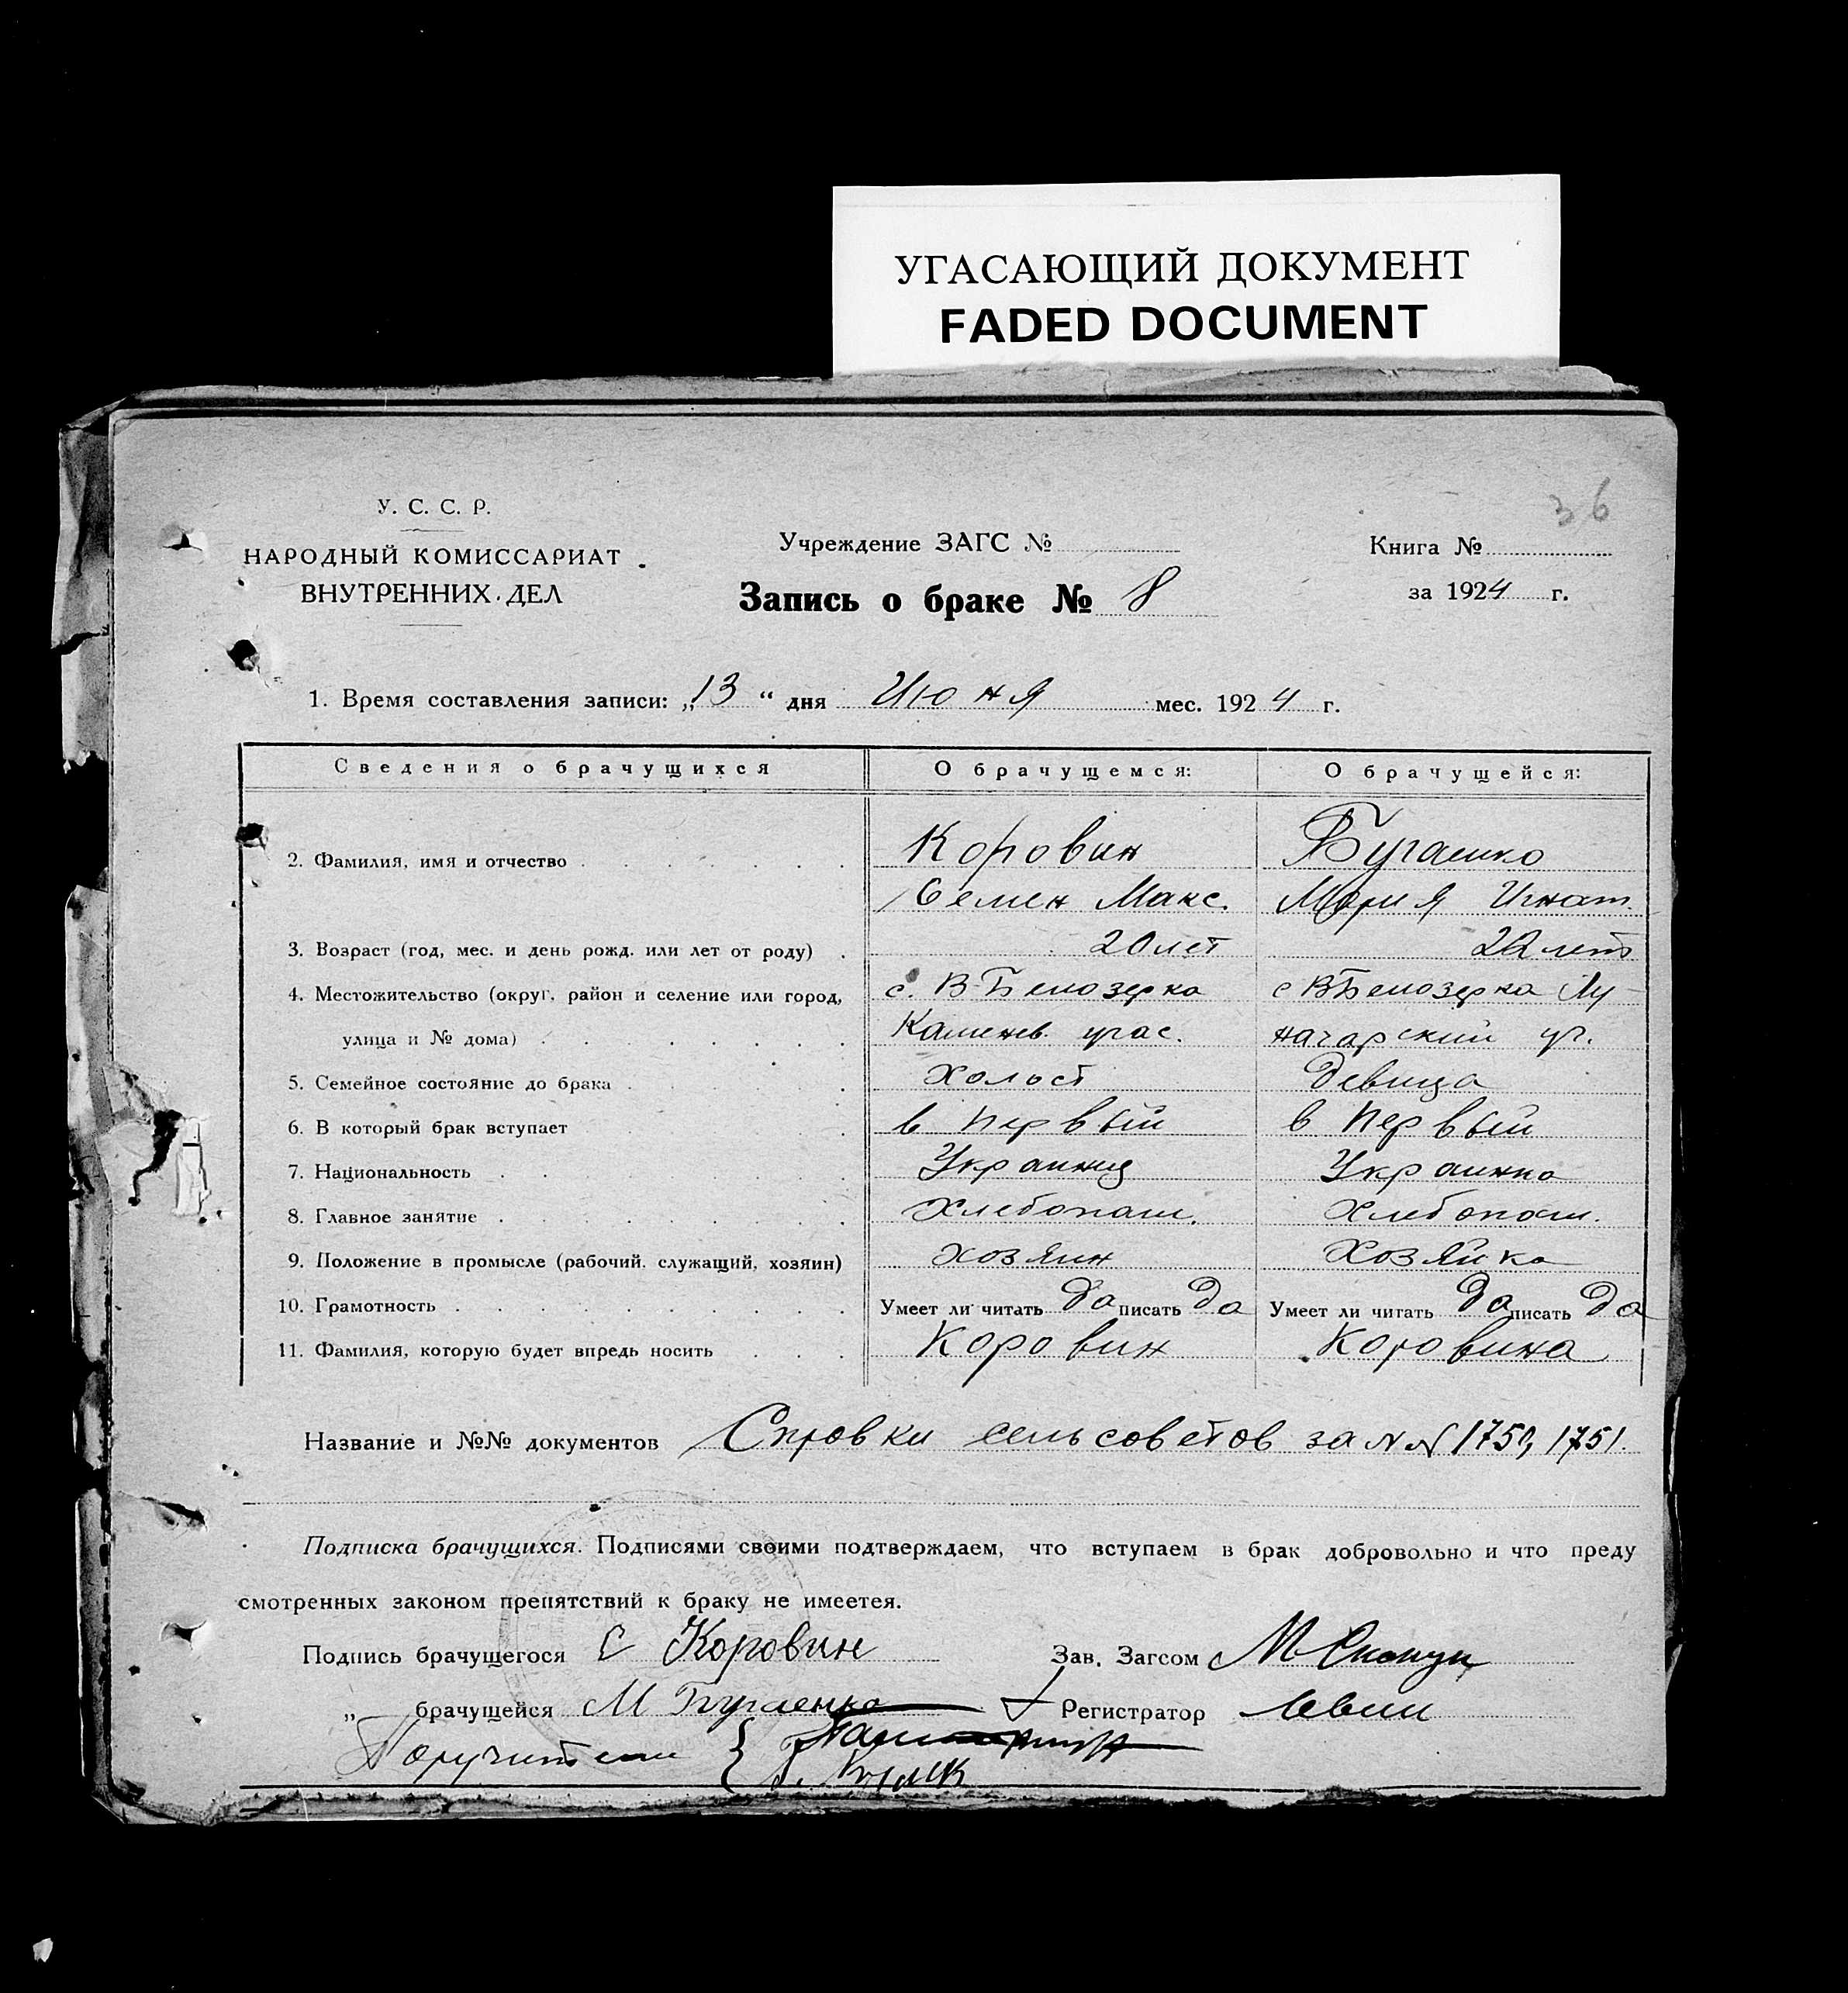 УГАСАЮЩИЙ ДОКУМЕНТ
FADED DOCUMENT
36
У. С. С. Р.
НАРОДНЫЙ КОМИССАРИАТ
ВНУТРЕННИХ ДЕЛ
Учреждение ЗАГС №
Запись о браке № 8
Книга №
за 1924 г.
1. Время составления записи: „13“ дня Июня мес. 1924 г.
Сведения о брачущихся О брачущемся: О брачущейся:
2. Фамилия, имя и отчество Коровин Бугаенко
Семен Макс. Мария Игнат.
3. Возраст (год, мес. и день рожд. или лет от роду) 20 лет 22 лет
4. Местожительство (округ, район и селение или город, с. В-Белозерка с В Белозерка Лу-
улица и № дома) начарский уч.
5. Семейное состояние до брака Холост Девица
6. В который брак вступает в первый в первый
7. Национальность Украинец Украинка
8. Главное занятие Хлебопаш. Хлебопаш.
9. Положение в промысле (рабочий. служащий, хозяин) хозяин Хозяйка
10. Грамотность Умеет ли читать да писать да Умеет ли читать да писать да
11. Фамилия, которую будет впредь носить Коровин Коровина
Название и №№ документов Справки сельсоветов за NN 1750, 1751.
Подписка брачущихся. Подписями своими подтверждаем, что вступаем в брак добровольно и что преду
смотренных законом препятствий к браку не имеется.
Подпись брачущегося С Коровин Зав. Загсом
„ брачущейся М Бугаенко Регистратор
Поручители {